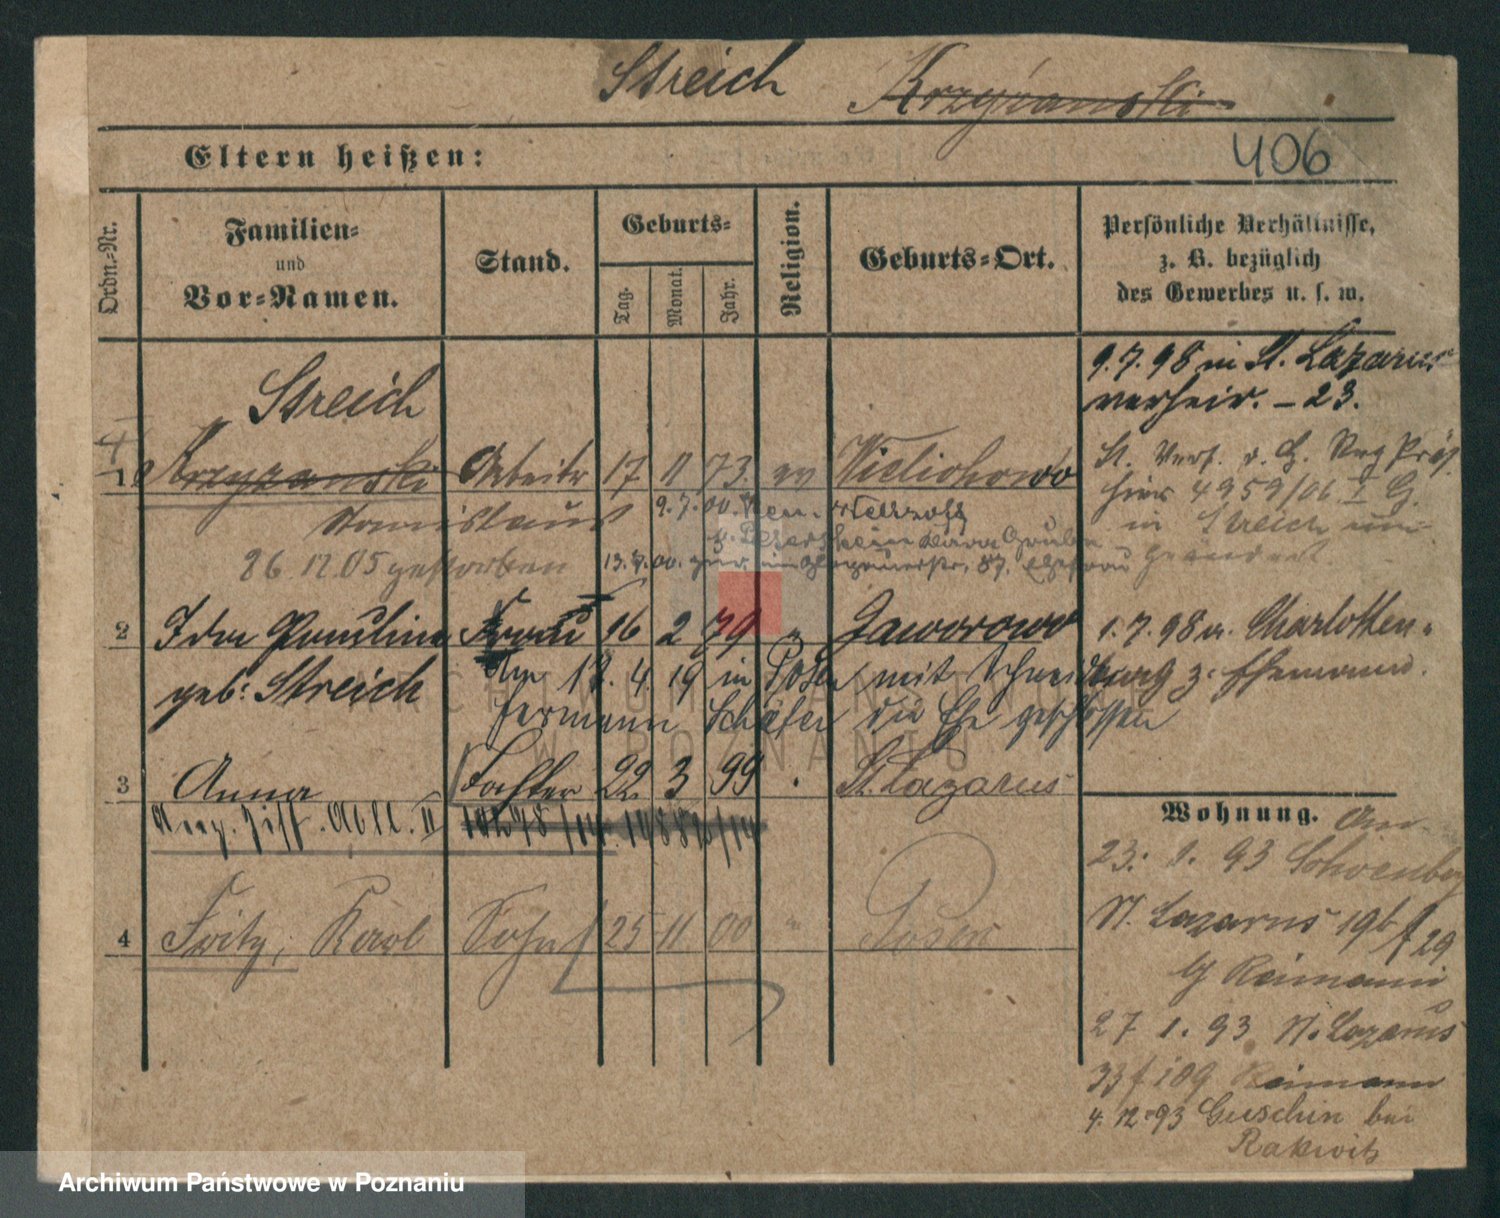 Streich Krzyżanski
Eltern heißen:
406
Ordn.-Nr.
Familien-
und
Vor-Namen.
Stand.
Geburts-
Tag.
Monat.
Jahr.
Religion.
Geburts-Ort.
Persönliche Verhältnisse,
z. B. bezüglich
des Gewerbes u. s. w.
9.7.98 in St. Lazarus
verheir. – 23.
Streich
1 Krzyzanski Arbeiter 17 11 73 ev Wielichowo
Stanislaus
9.7.00.
26.12.05 gestorben
13.7.00.
St. Verf. d. H. Reg Präs.
hier 4959/06 I G.
in Streich um-
geändert
2 Ida Pauline Frau 16 2 79 " Jaworowo
geb: Streich
Am 12.4.19 in Posen mit Schneider
Hermann Schäfer die Ehe geschlossen
1.7.98 a. Charlotten-
burg z. Ehemann.
3 Anna Tochter 22 3 99 " St. Lazarus
4 Fritz, Karl Sohn 25 11 00 " Posen
Wohnung.
23. 1. 93
St. Lazarus 19b f 29
Reimann
27 1. 93 St. Lazarus
33 f 109 Reimann
4.12.93 Guschin bei
Rakwitz
ARCHIWUM PAŃSTWOWE
W POZNANIU
Archiwum Państwowe w Poznaniu